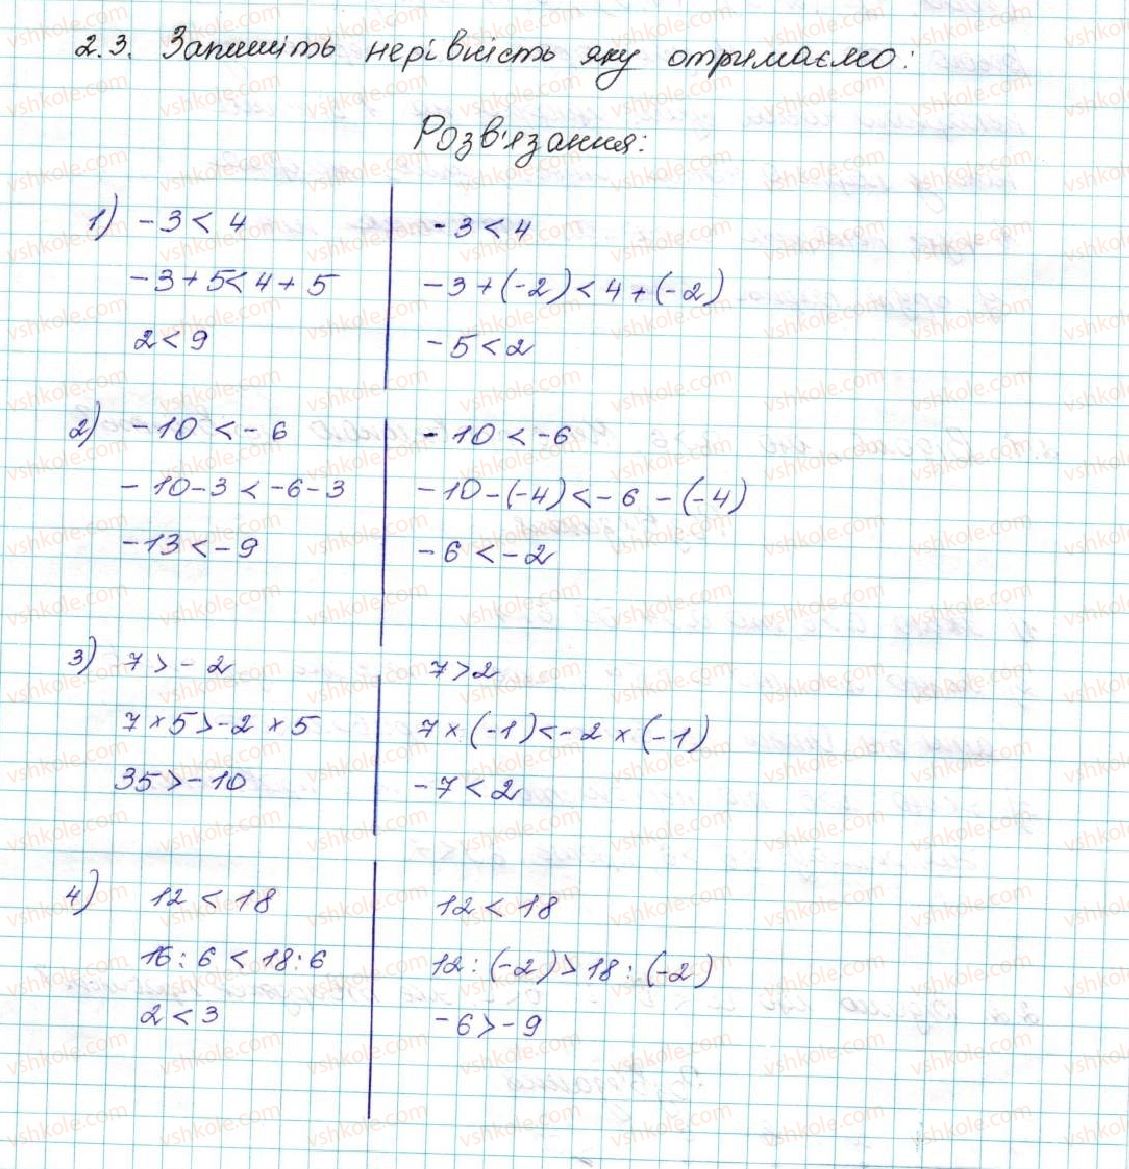 2.3. Запишіть нерівність яку отримаємо:
Розв'язання:
1) -3 < 4
-3 + 5 < 4 + 5
2 < 9
-3 < 4
-3 + (-2) < 4 + (-2)
-5 < 2
2) -10 < -6
-10 - 3 < -6 - 3
-13 < -9
-10 < -6
-10 - (-4) < -6 - (-4)
-6 < -2
3) 7 > -2
7 × 5 > -2 × 5
35 > -10
7 > 2
7 × (-1) < -2 × (-1)
-7 < 2
4) 12 < 18
16 : 6 < 18 : 6
2 < 3
12 < 18
12 : (-2) > 18 : (-2)
-6 > -9